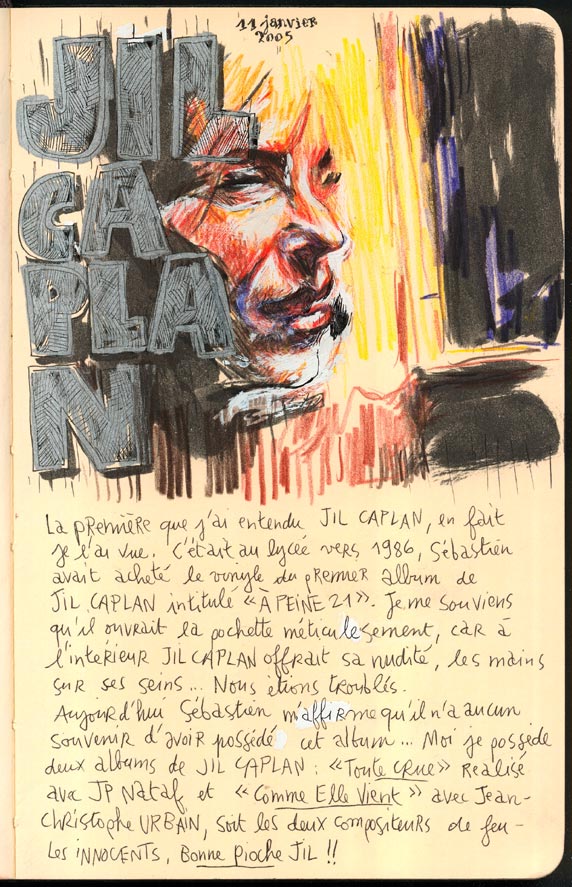 11 janvier
2005
JIL
CA
PLA
N
La première que j'ai entendu JIL CAPLAN, en fait
je l'ai vue. C'était au lycée vers 1986, Sébastien
avait acheté le vinyle du premier album de
JIL CAPLAN intitulé «À PEINE 21». Je me souviens
qu'il ouvrait la pochette méticulesement, car à
l'intérieur JIL CAPLAN offrait sa nudité, les mains
sur ses seins... Nous étions troublés.
Aujourd'hui Sébastien m'affirme qu'il n'a aucun
souvenir d'avoir possédé cet album... Moi je possède
deux albums de JIL CAPLAN : «Toute crue» Réalisé
avec JP Nataf et «Comme Elle Vient» avec Jean-
Christophe URBAIN, soit les deux compositeurs de feu-
Les INNOCENTS, Bonne Pioche JIL !!